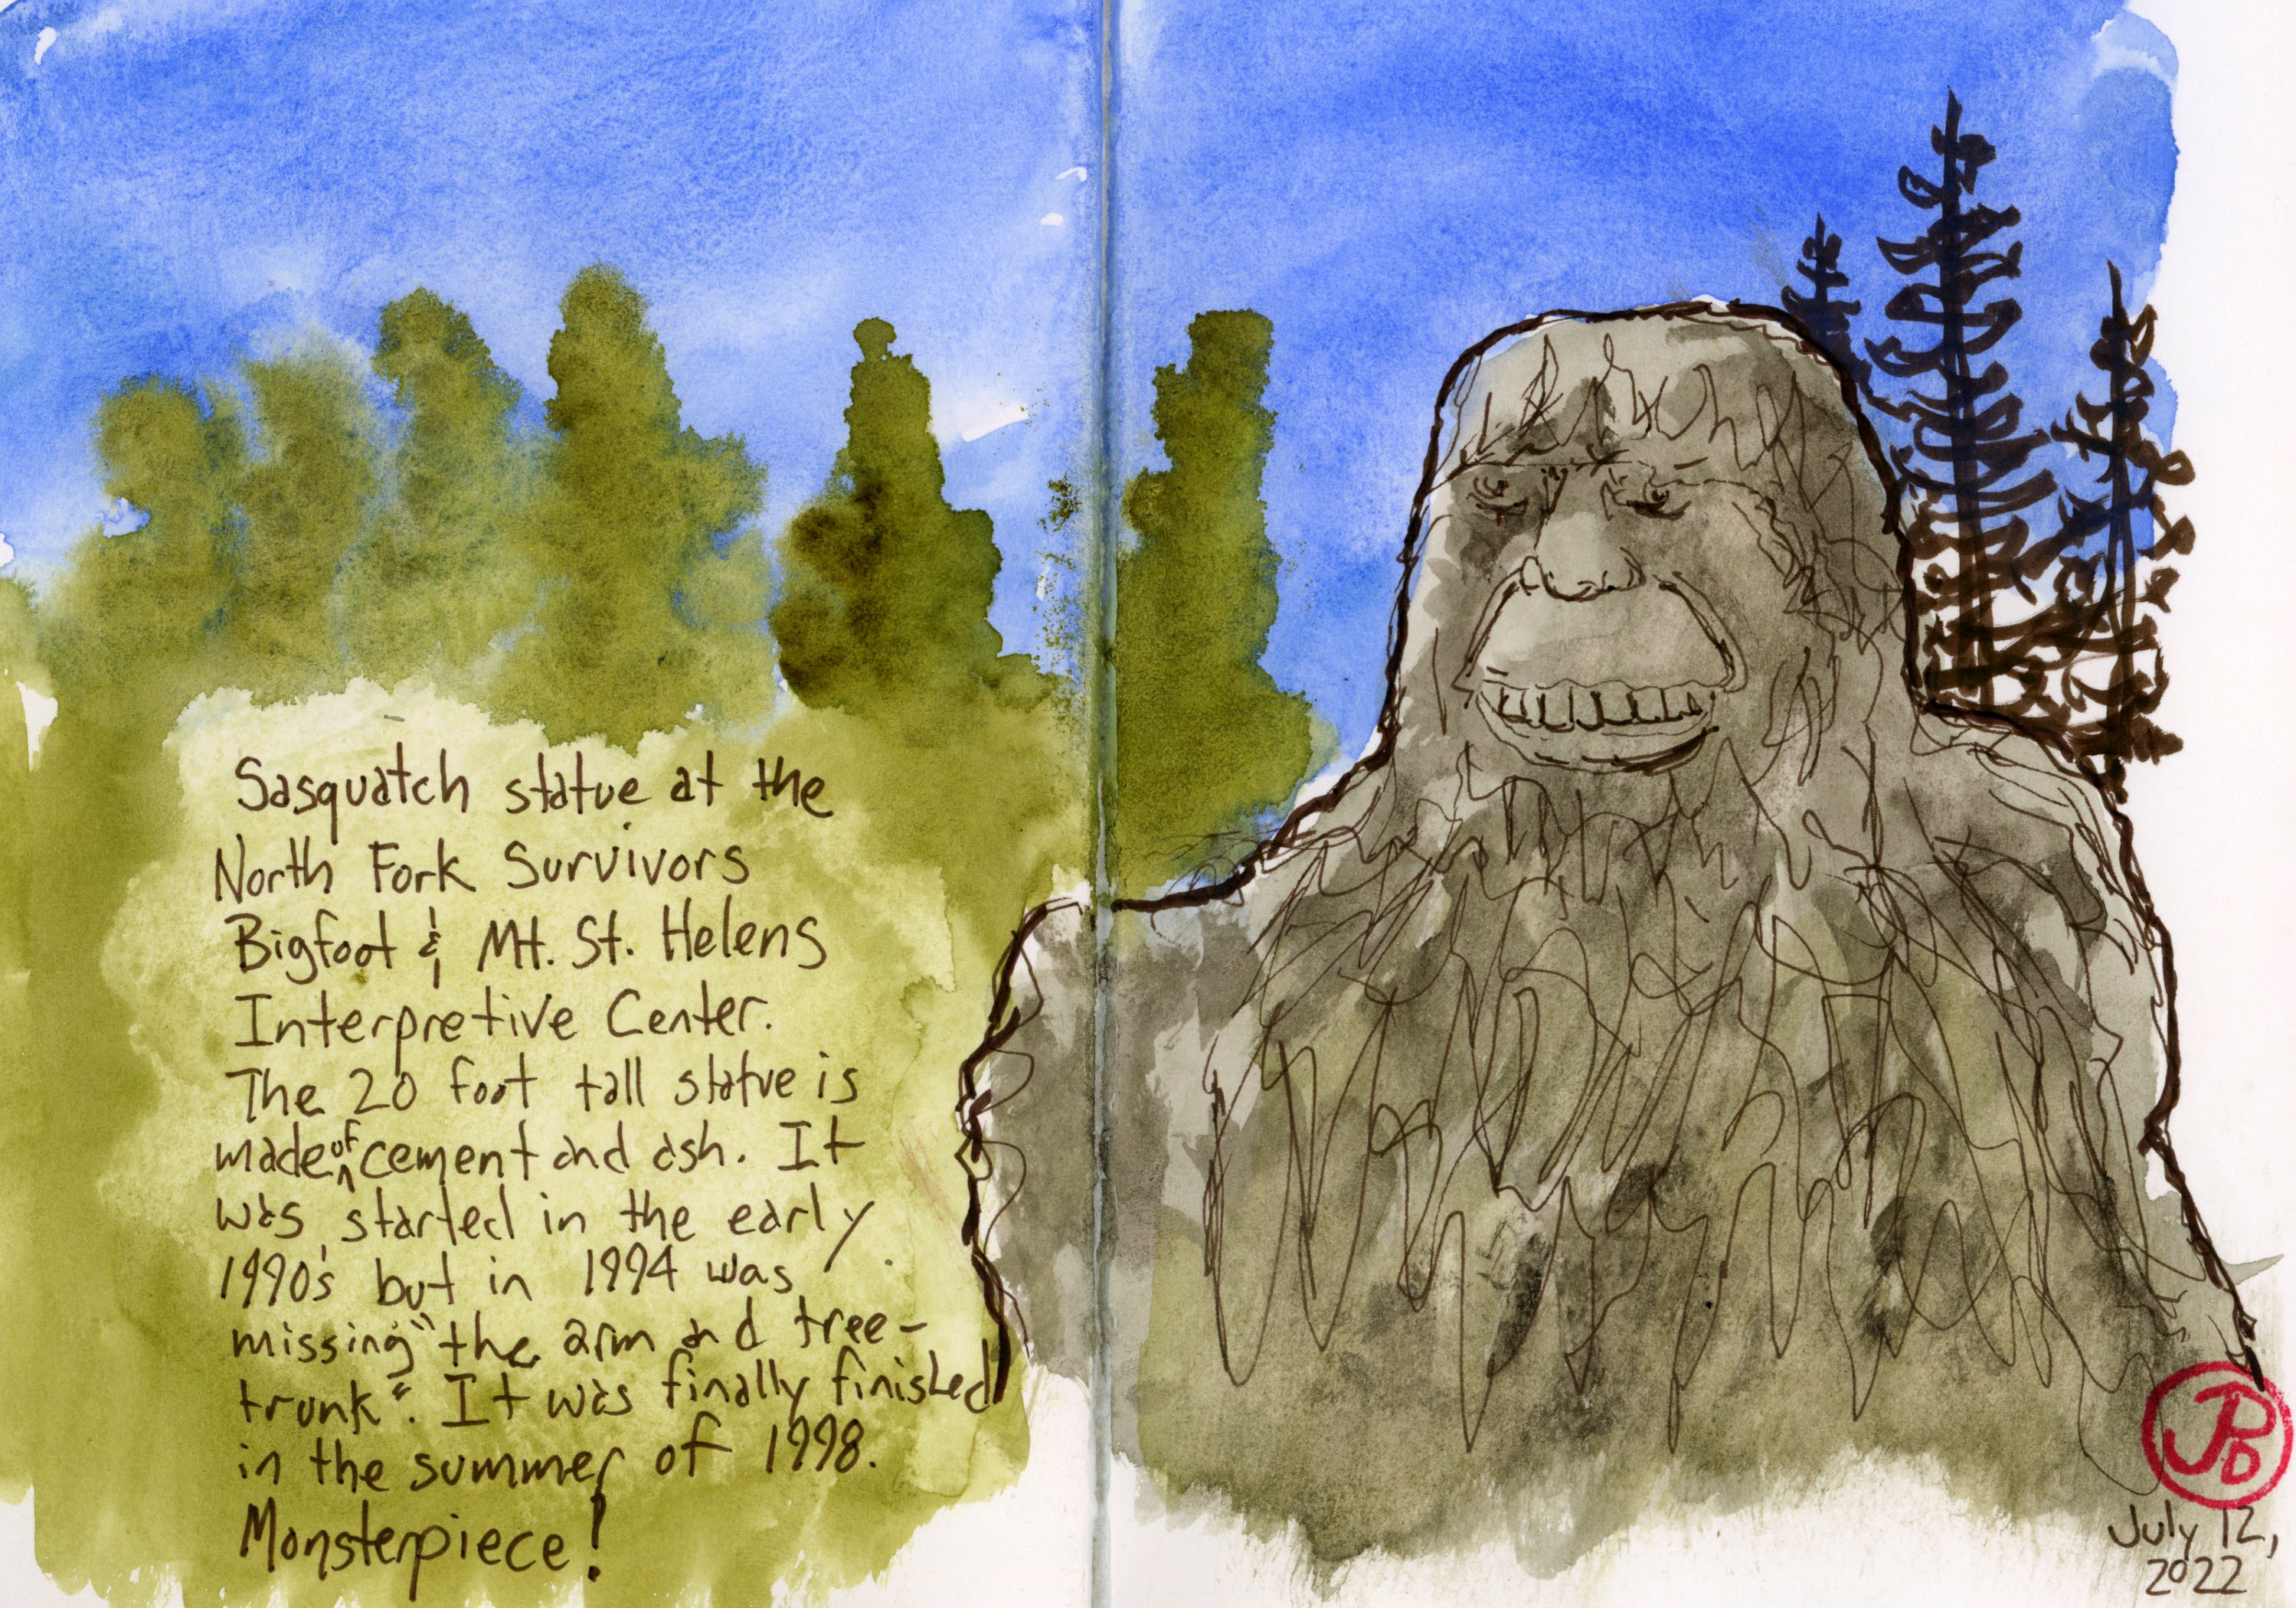 Sasquatch statue at the
North Fork Survivors
Bigfoot & Mt. St. Helens
Interpretive Center.
The 20 foot tall statue is
made of cement and ash. It
was started in the early
1990's but in 1994 was
missing "the arm and tree-
trunk". It was finally finished
in the summer of 1998.
Monsterpiece!
JPD
July 12,
2022